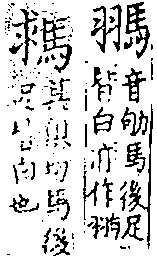 音劬馬後足
皆白亦作翑
其俱切馬後
足皆白也